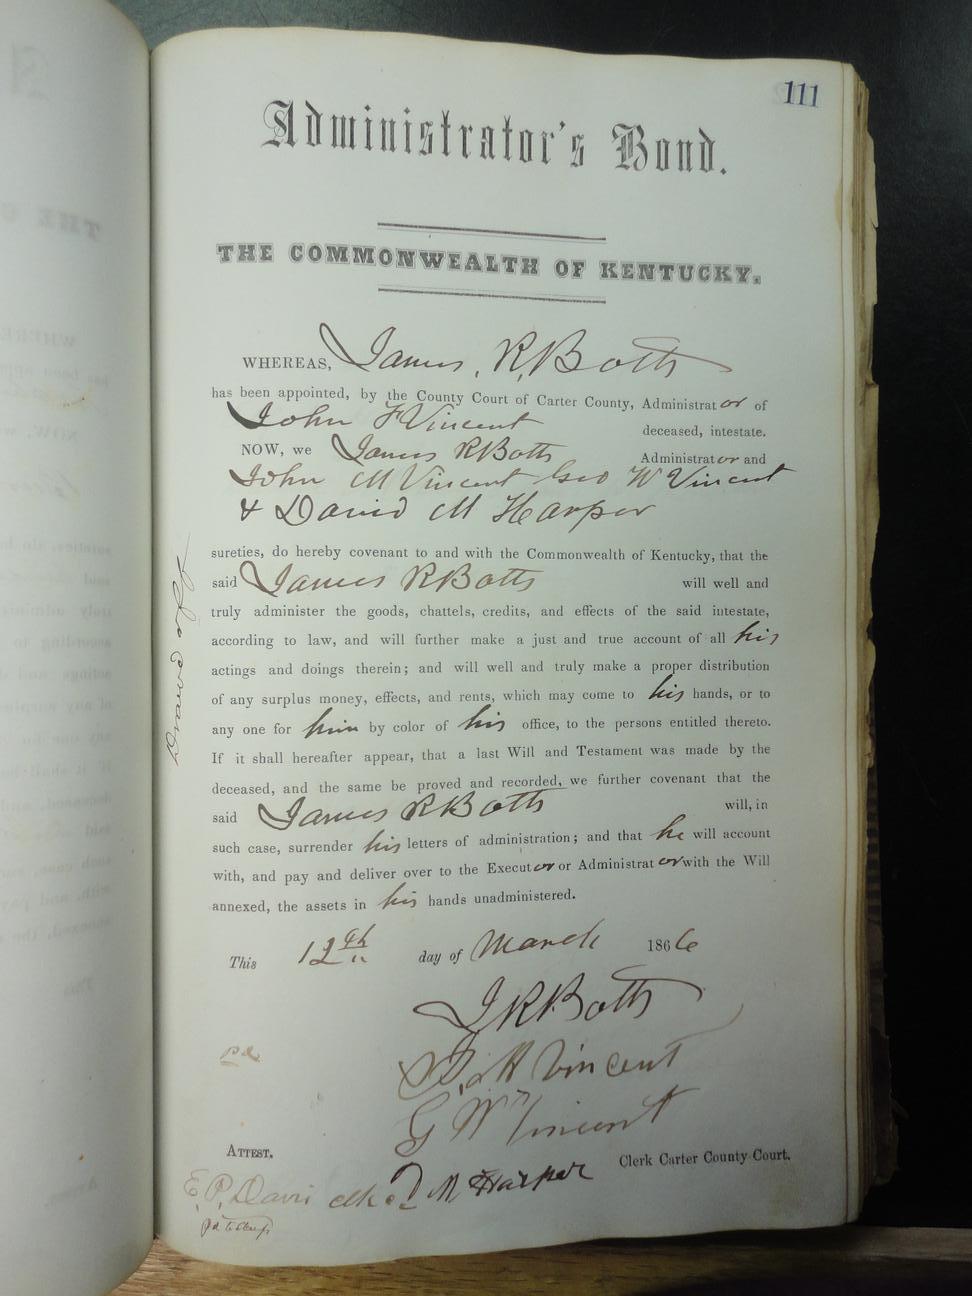 111
Administrator's Bond.
THE COMMONWEALTH OF KENTUCKY.
WHEREAS, James. R. Botts
has been appointed, by the County Court of Carter County, Administrator of
John F Vincent deceased, intestate.
NOW, we James R Botts Administrator and
John M Vincent Geo W Vincent
& David M Harper
sureties, do hereby covenant to and with the Commonwealth of Kentucky, that the
said James R Botts will well and
truly administer the goods, chattels, credits, and effects of the said intestate,
according to law, and will further make a just and true account of all his
actings and doings therein; and will well and truly make a proper distribution
of any surplus money, effects, and rents, which may come to his hands, or to
any one for him by color of his office, to the persons entitled thereto.
If it shall hereafter appear, that a last Will and Testament was made by the
deceased, and the same be proved and recorded, we further covenant that the
said James R Botts will, in
such case, surrender his letters of administration; and that he will account
with, and pay and deliver over to the Executor or Administrator with the Will
annexed, the assets in his hands unadministered.
This 12th day of March 1866
J R Botts
Vincent
G W Vincent
ATTEST.
Clerk Carter County Court.
E. P. Davis clk
D M Harper